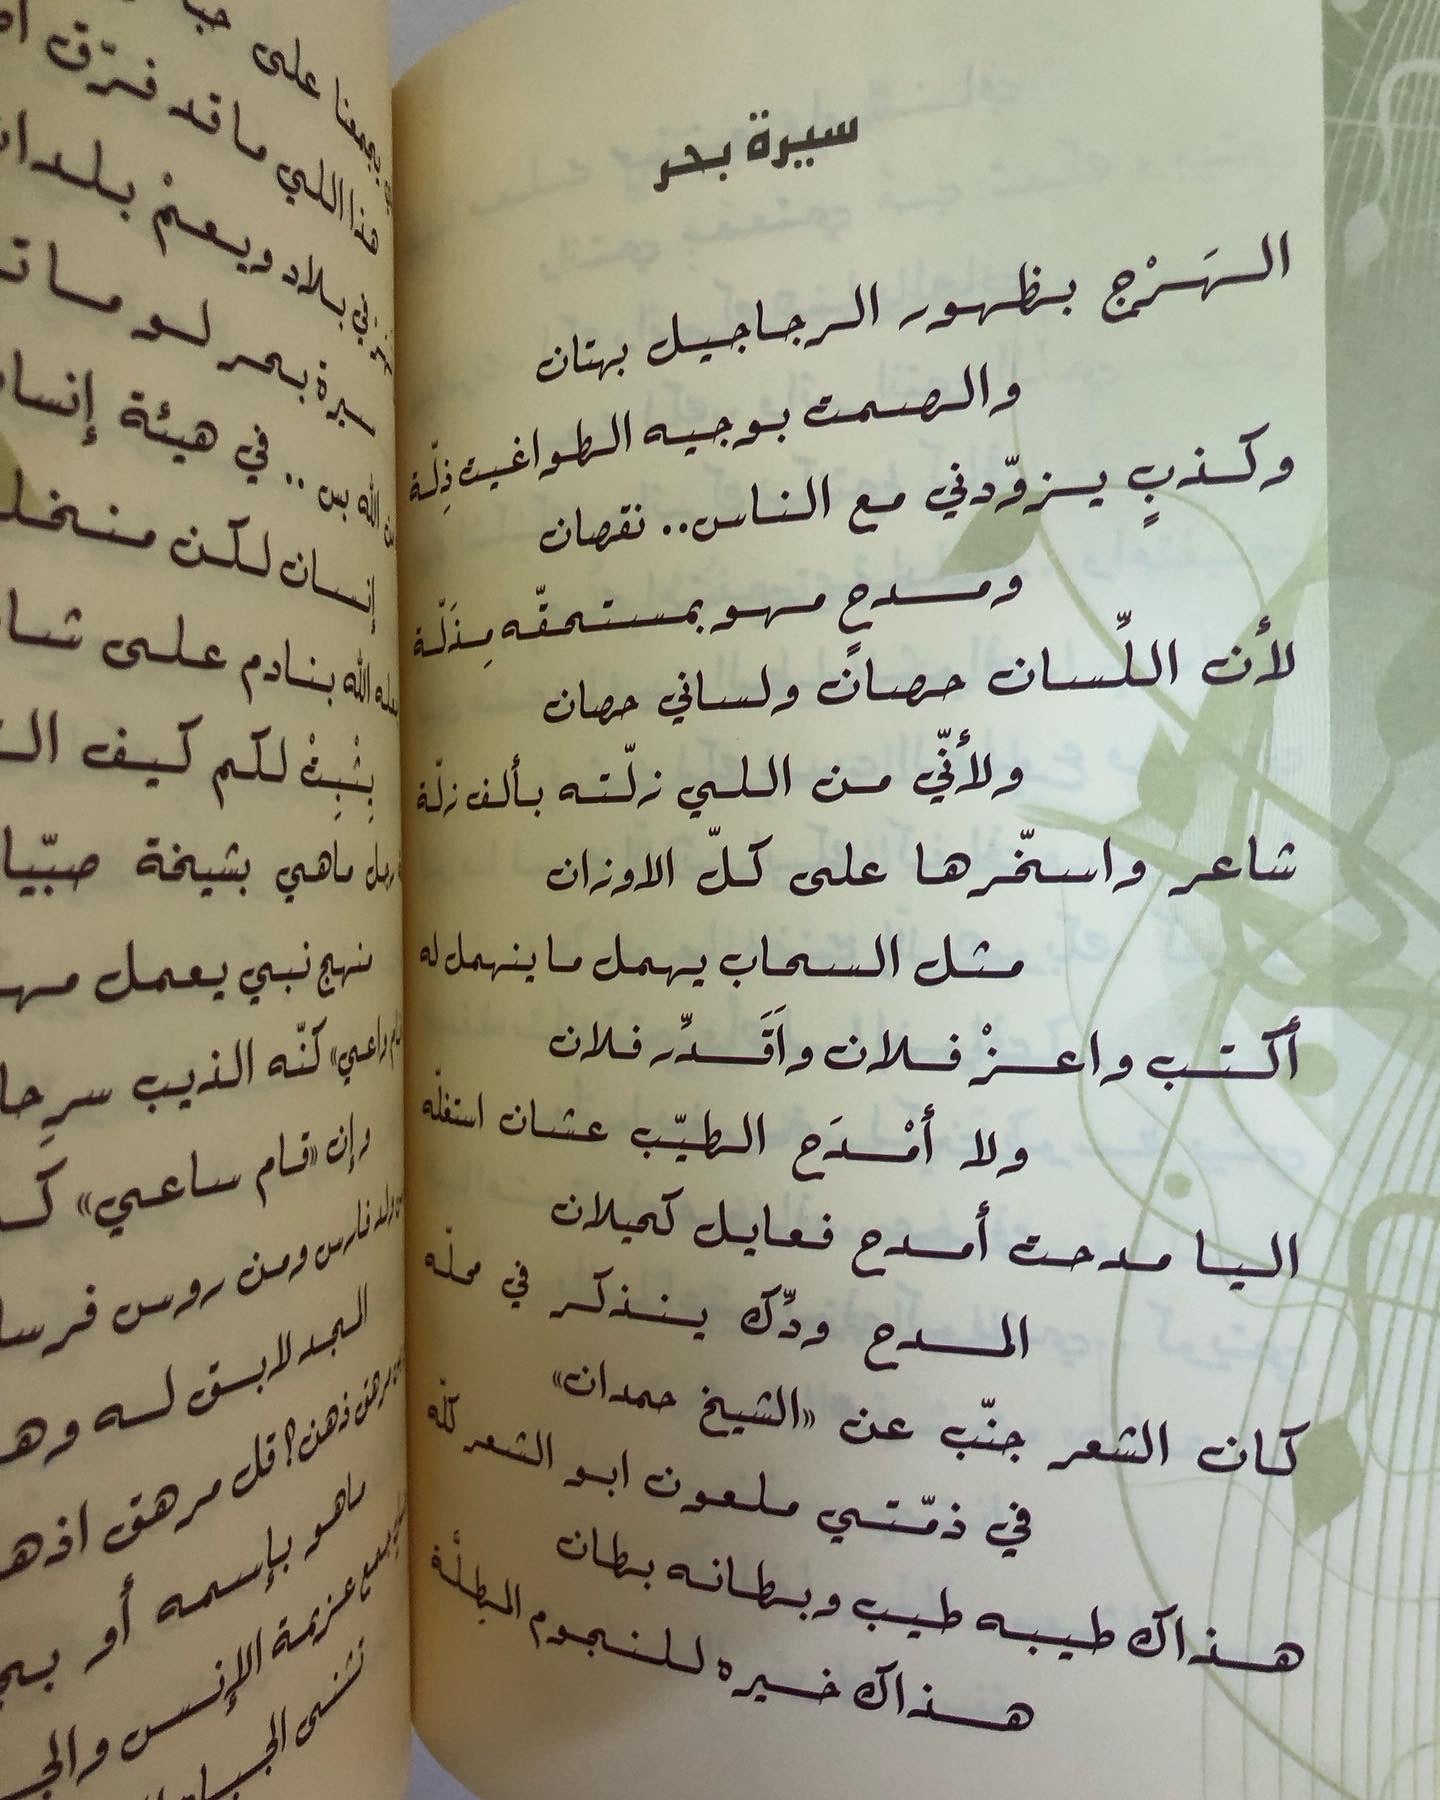 سيرة بحر
الهَرْج بظهور الرجاجيل بهتان
والصمت بوجيه الطواغيت ذِلّة
وكذبٍ يزوّدني مع الناس.. نقصان
ومدحٍ مهو بمستحقّه مِذَلّة
لأن اللِّسان حصانٌ ولساني حصان
ولأنّي من اللي زلّته بألف زلّة
شاعر واسخّرها على كلّ الاوزان
مثل السحاب يهمل ما ينهمل له
أكتب واعزْ فلان واَقَدِّر فلان
ولا أمْدَح الطيّب عشان استغلّه
اليا مدحت أمدح فعايل كحيلان
المدح ودّك ينذكر في محلّه
كان الشعر جنّب عن «الشيخ حمدان»
في ذمّتي ملعون ابو الشعر كلّه
هذاك طيبه طيب وبطانه بطان
هذاك خيره للنجوم المطلَّة
يجمعنا على
هذا اللي ما قد فرّق
في بلاد ويعمْ
سيرة بحر لو
الله بس .. في هيئة
إنسان لكن
الله بنادم على
بِثْبِتْ لكم كيف
ماهي بشيخة
نهج نبي يعمل
كنّه الذيب سرحا
وإن «قام ساعي»
فارس ومن روس
المجد لابق له
ذهن؟ قل مرهق
ماهو بإسمه أو
عزيمة الإنس